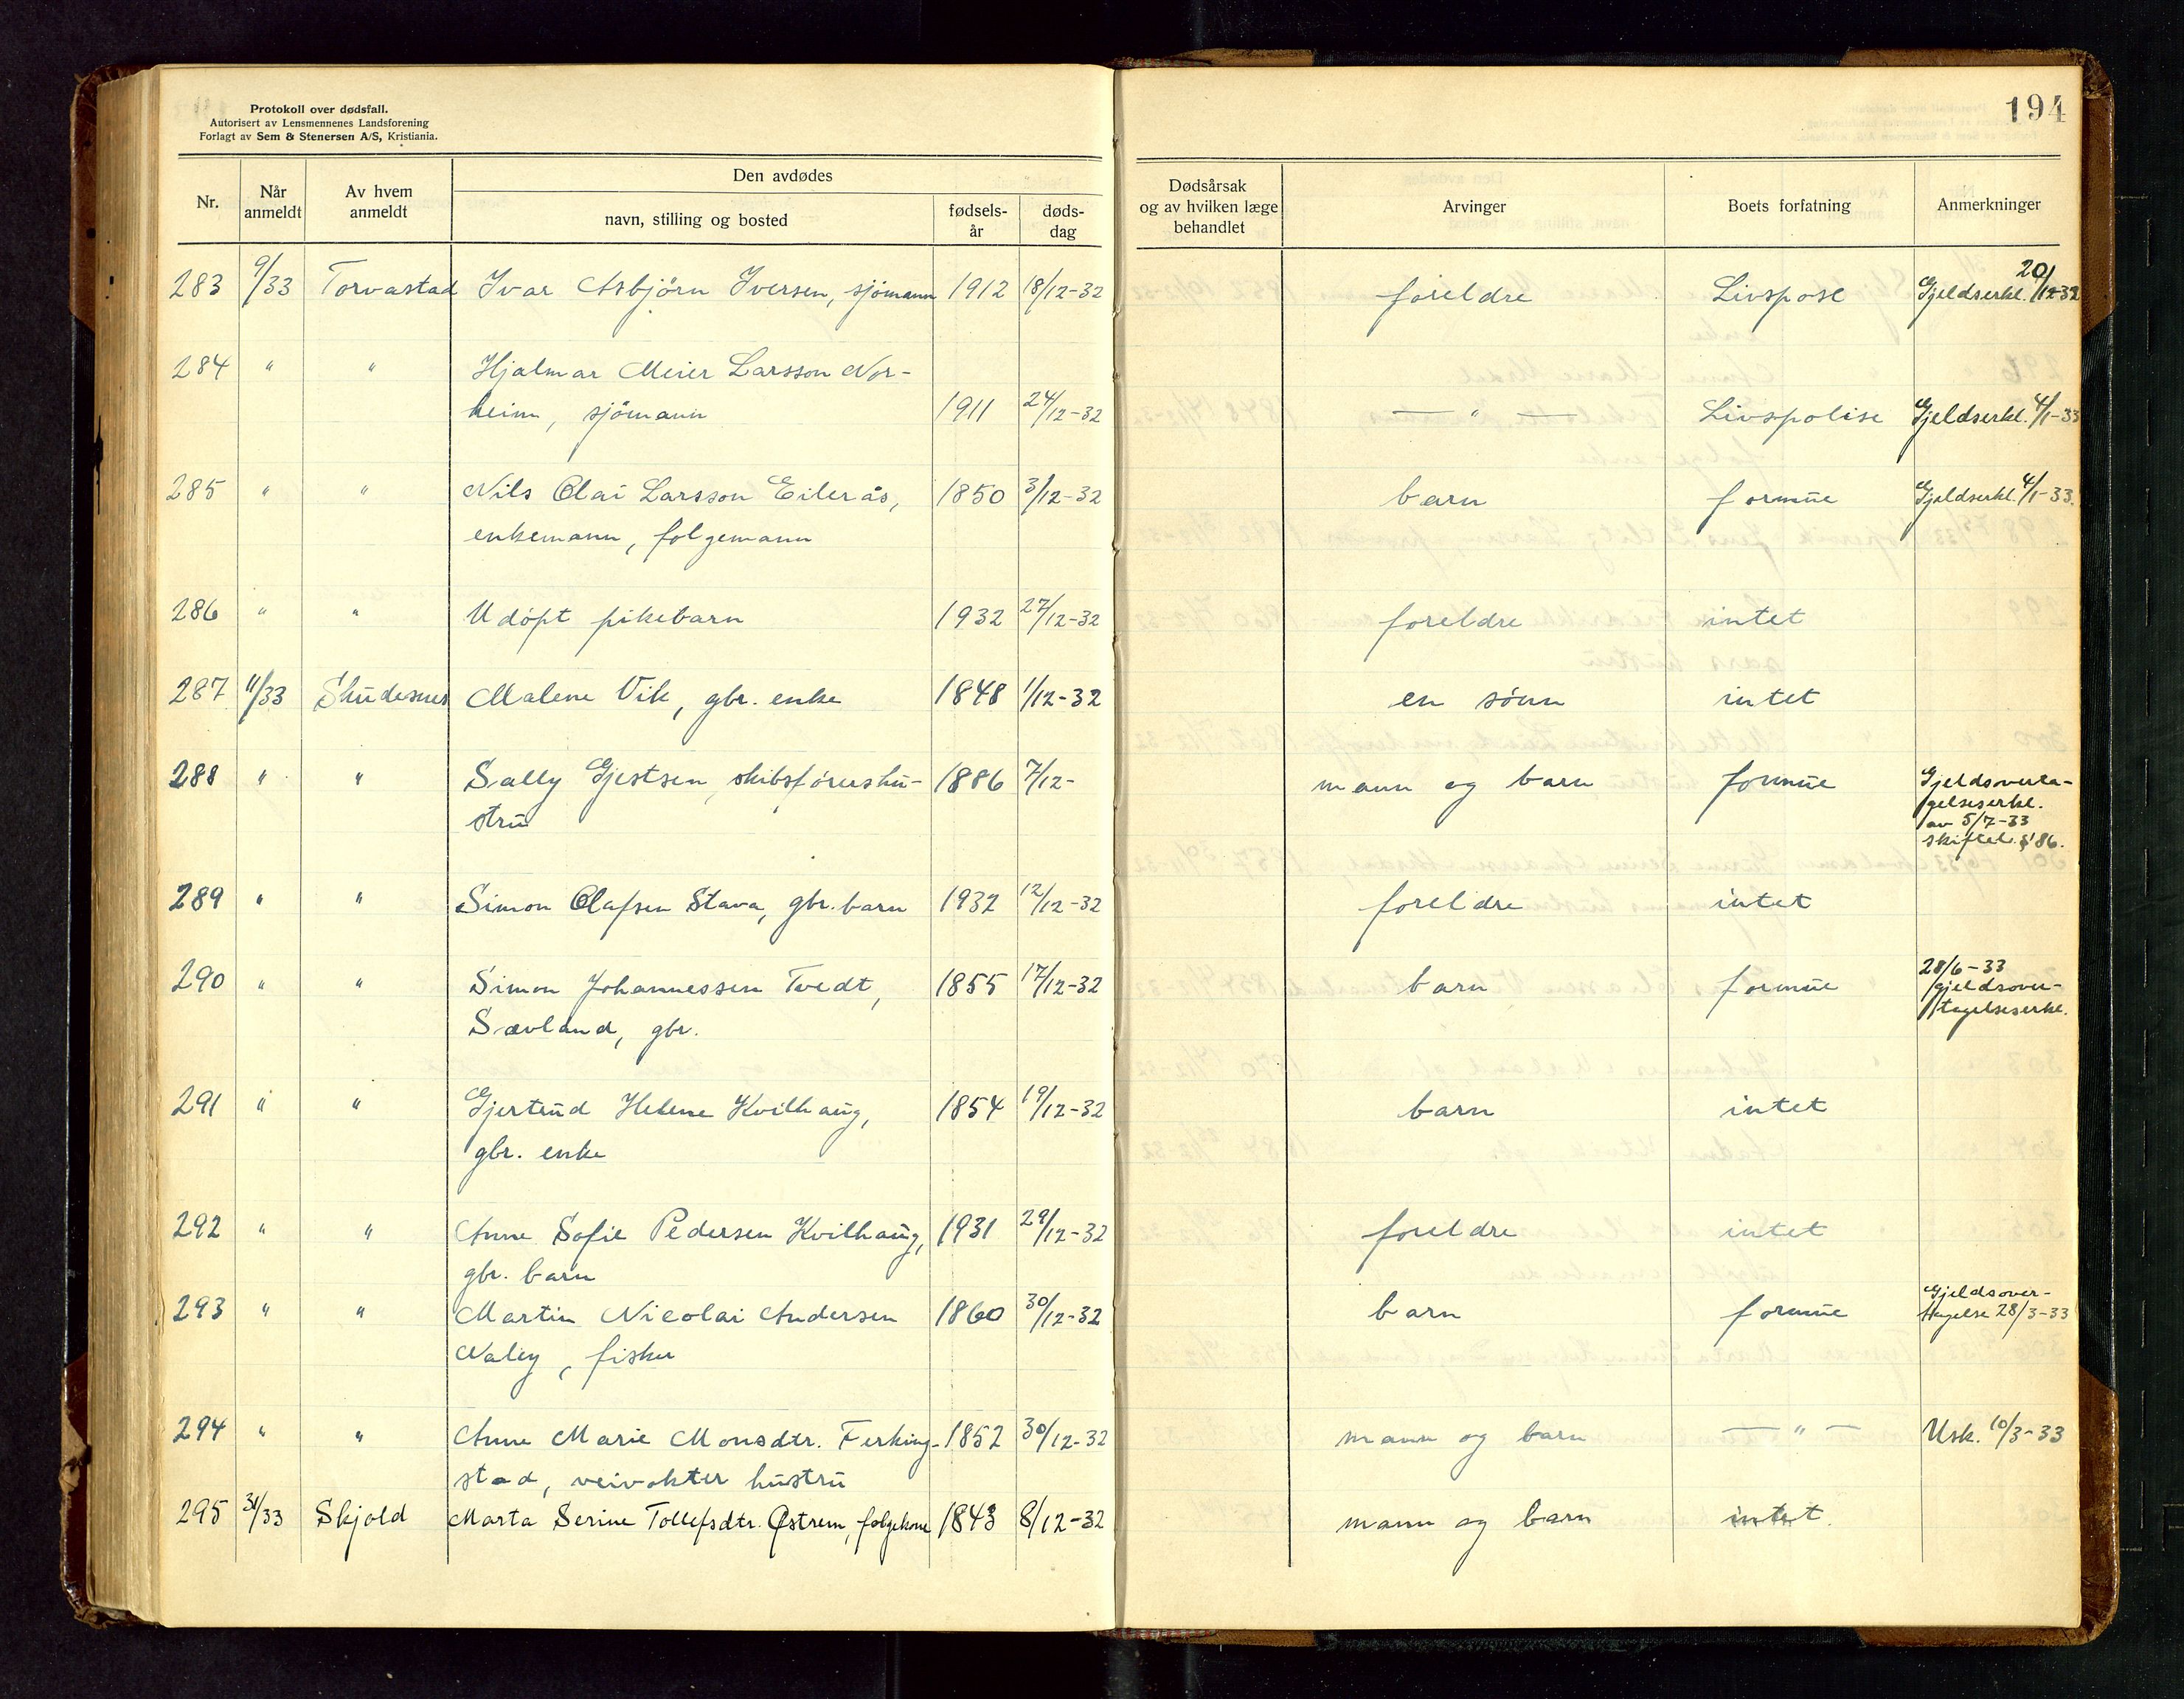 Protokoll over dødsfall.
Autorisert av Lensmennenes Landsforening
Forlagt av Sem & Stenersen A/S, Kristiania.
194
Nr. Når anmeldt Av hvem anmeldt Den avdødes
navn, stilling og bosted fødsels-år døds-dag Dødsårsak og av hvilken læge behandlet Arvinger Boets forfatning Anmerkninger
283 9/33 Torvastad Ivar Asbjörn Iversen, sjömann 1912 18/12-32 foreldre Livspose Gjeldserkl. 20/12-32
284 " " Hjalmar Meier Larsson Nor-
heim, sjömann 1911 24/12-32 — " — Livspolise Gjeldserkl. 4/1-33
285 " " Nils Olai Larsson Eilerås, 1850 3/12-32 barn formue Gjeldserkl. 4/1-33.
enkemann, folgemann
286 " " Udöpt pikebarn 1932 27/12-32 foreldre intet
287 11/33 Skudesnes Malene Vik, gbr. enke 1848 1/12-32 en sönn intet
288 " " Sally Gjestsen, skibsförershu- 1886 7/12- mann og barn formue Gjeldsoverta-
stru gelseserkl.
av 5/7-33
skiftel. § 86.
289 " " Simon Olafsen Stava, gbr. barn 1932 12/12-32 foreldre intet
290 " " Simon Johannessen Tvedt, 1855 17/12-32 barn formue 28/6-33
gjeldsover-
Sævland, gbr. tagelseserkl.
291 " " Gjertrud Helene Kvilhaug, 1854 19/12-32 barn intet
gbr. enke
292 " " Anne Sofie Pedersen Kvilhaug, 1931 29/12-32 foreldre intet
gbr. barn
293 " " Martin Nicolai Andersen 1860 30/12-32 barn formue Gjeldsover-
tagelse 28/3-33
Naley, fisker
294 " " Anne Marie Monsdtr. Ferking- 1852 30/12-32 mann og barn — " — Usk. 10/3-33
stad, veivokter hustru
295 31/33 Skjold Marta Serine Tollefsdtr. Østrem, folgekone 1843 8/12-32 mann og barn intet.